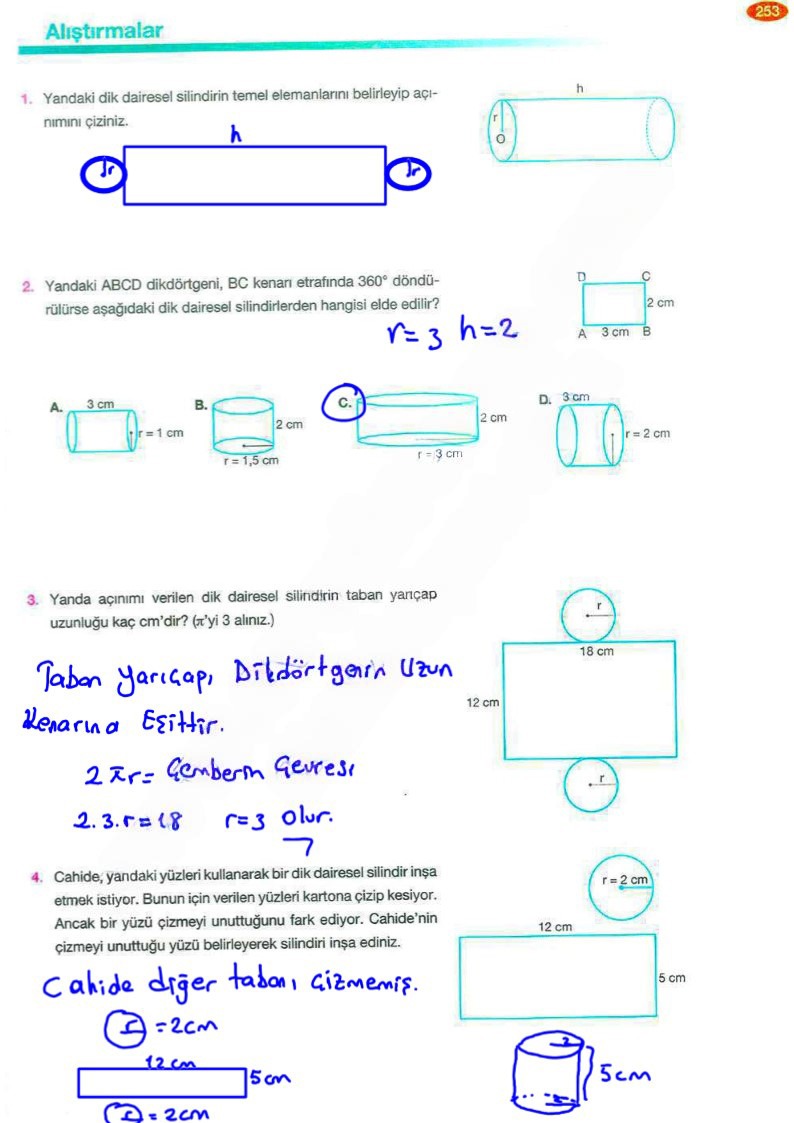 253
Alıştırmalar
1. Yandaki dik dairesel silindirin temel elemanlarını belirleyip açı-
nımını çiziniz.
h
r
r
h
r
O
2. Yandaki ABCD dikdörtgeni, BC kenarı etrafında 360° döndü-
rülürse aşağıdaki dik dairesel silindirlerden hangisi elde edilir?
r=3 h=2
D C
2 cm
A 3 cm B
A. 3 cm
r = 1 cm
B.
2 cm
r = 1,5 cm
C.
2 cm
r = 3 cm
D. 3 cm
r = 2 cm
3. Yanda açınımı verilen dik dairesel silindirin taban yarıçap
uzunluğu kaç cm'dir? (π'yi 3 alınız.)
Taban Yarıçapı Dikdörtgenin Uzun
Kenarına Eşittir.
2πr= Çemberin Çevresi
2.3.r=18 r=3 Olur.
r
18 cm
12 cm
r
4. Cahide, yandaki yüzleri kullanarak bir dik dairesel silindir inşa
etmek istiyor. Bunun için verilen yüzleri kartona çizip kesiyor.
Ancak bir yüzü çizmeyi unuttuğunu fark ediyor. Cahide'nin
çizmeyi unuttuğu yüzü belirleyerek silindiri inşa ediniz.
r = 2 cm
12 cm
5 cm
Cahide diğer tabanı çizmemiş.
r =2cm
12 cm
5cm
r =2cm
2
2
5cm